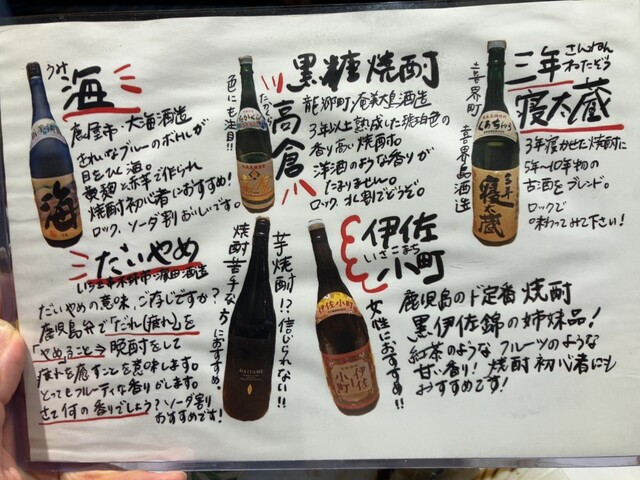 うみ
海
鹿屋市・大海酒造
きれいなブルーのボトルが
目をひく海。
黄麹と赤芋で作られ
焼酎初心者におすすめ!
ロック、ソーダ割おいしいです。
色にも注目!!
黒糖焼酎
たかくら
高倉
龍郷町・奄美大島酒造
3年以上熟成した琥珀色の
香り高い焼酎。
洋酒のような香りが
たまりません。
ロック、水割でどうぞ。
喜界町
喜界島酒造
三年
さんねん
ねたぞう
寝太蔵
3年寝かせた焼酎に
5年〜10年物の
古酒をブレンド。
ロックで
味わってみて下さい!
海
高倉
しまっちゅ
三年
寝太蔵
だいやめ
いちき串木野市・濵田酒造
だいやめの意味、ご存じですか?
鹿児島弁で「だれ(疲れ)」を
「やめる」こと→晩酌をして
疲れを癒すことを意味します。
とってもフルーティな香りがします。
さて何の香りでしょう?ソーダ割
おすすめです!
芋焼酎!?信じられない!!
焼酎苦手な方におすすめ。
DAIYAME
伊佐
いさこまち
小町
女性におすすめ!!
鹿児島のド定番焼酎
黒伊佐錦の姉妹品!
紅茶のようなフルーツのような
甘い香り!焼酎初心者にも
おすすめです!
伊佐小町
伊佐
小町